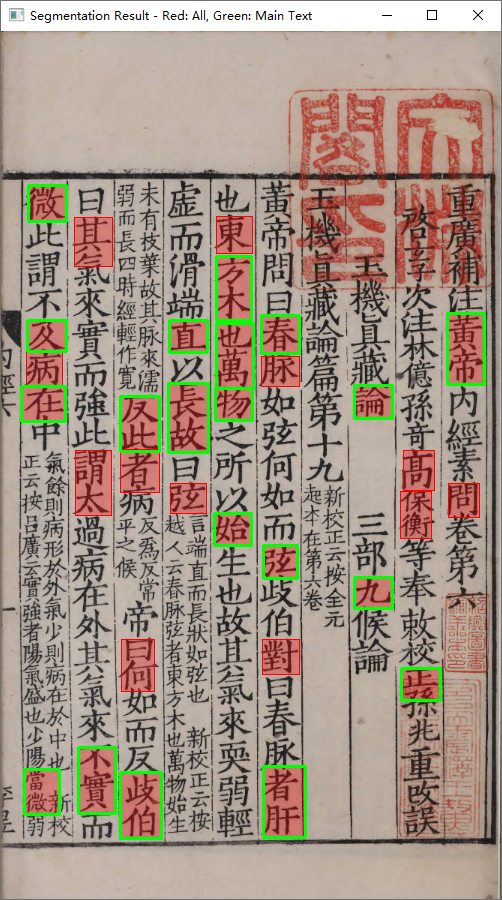 Segmentation Result - Red: All, Green: Main Text
重廣補注黃帝內經素問卷第六
啓玄子次注林億孫奇高保衡等奉敕校正孫兆重改誤
玉機真藏論 三部九候論
玉機眞藏論篇第十九 新校正云按全元起本在第六卷
黃帝問曰春脉如弦何如而弦歧伯對曰春脉者肝
也東方木也萬物之所以始生也故其氣來耎弱輕
虛而滑端直以長故曰弦 言端直而長狀如弦也 新校正云按越人云春脉弦者東方木也萬物始生
未有枝葉故其脉來濡弱而長四時經輕作寬 反此者病 反爲反常平之候 帝曰何如而反歧伯
曰其氣來實而強此謂太過病在外其氣來不實而
微此謂不及病在中 氣餘則病形於外氣少則病在於中也 新校正云按呂廣云實強者陽氣盛也少陽當微弱